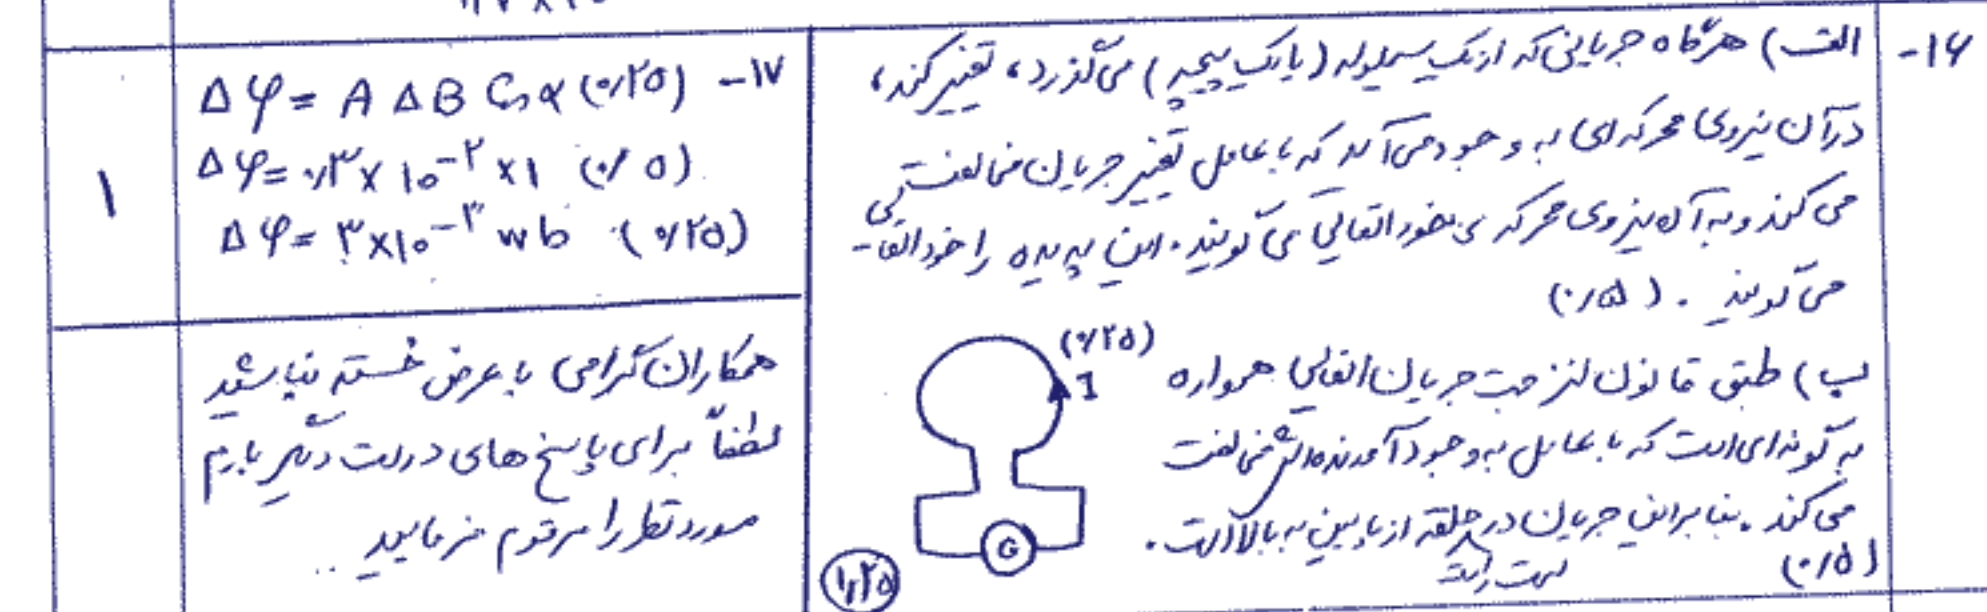 ۱۶- الف) هرگاه جریانی که از یک سیملوله (یا یک پیچه) می‌گذرد، تغییر کند،
در آن نیروی محرکه‌ای به وجود می‌آید که با عامل تغییر جریان مخالفت
می‌کند و به آن نیروی محرکه‌ی خودالقایی می‌گویند. این پدیده را خودالقایی
می‌گویند. (۰/۵)
ب) طبق قانون لنز جهت جریان القایی همواره
به گونه‌ای است که با عامل به وجود آورنده‌اش مخالفت
می‌کند. بنابراین جریان در حلقه از پایین به بالا است.
سمت راست
(۰/۵)
(۰/۲۵)
I
G
۱/۲۵
۱۷- Δφ = A ΔB Cosα (۰/۲۵)
Δφ = ۰/۳ × ۱۰⁻² × ۱ (۰/۵)
Δφ = ۳×۱۰⁻³ wb (۰/۲۵)
۱
همکاران گرامی با عرض خسته نباشید
لطفاً برای پاسخ‌های درست دیگر بارم
مورد نظر را مرقوم فرمایید..